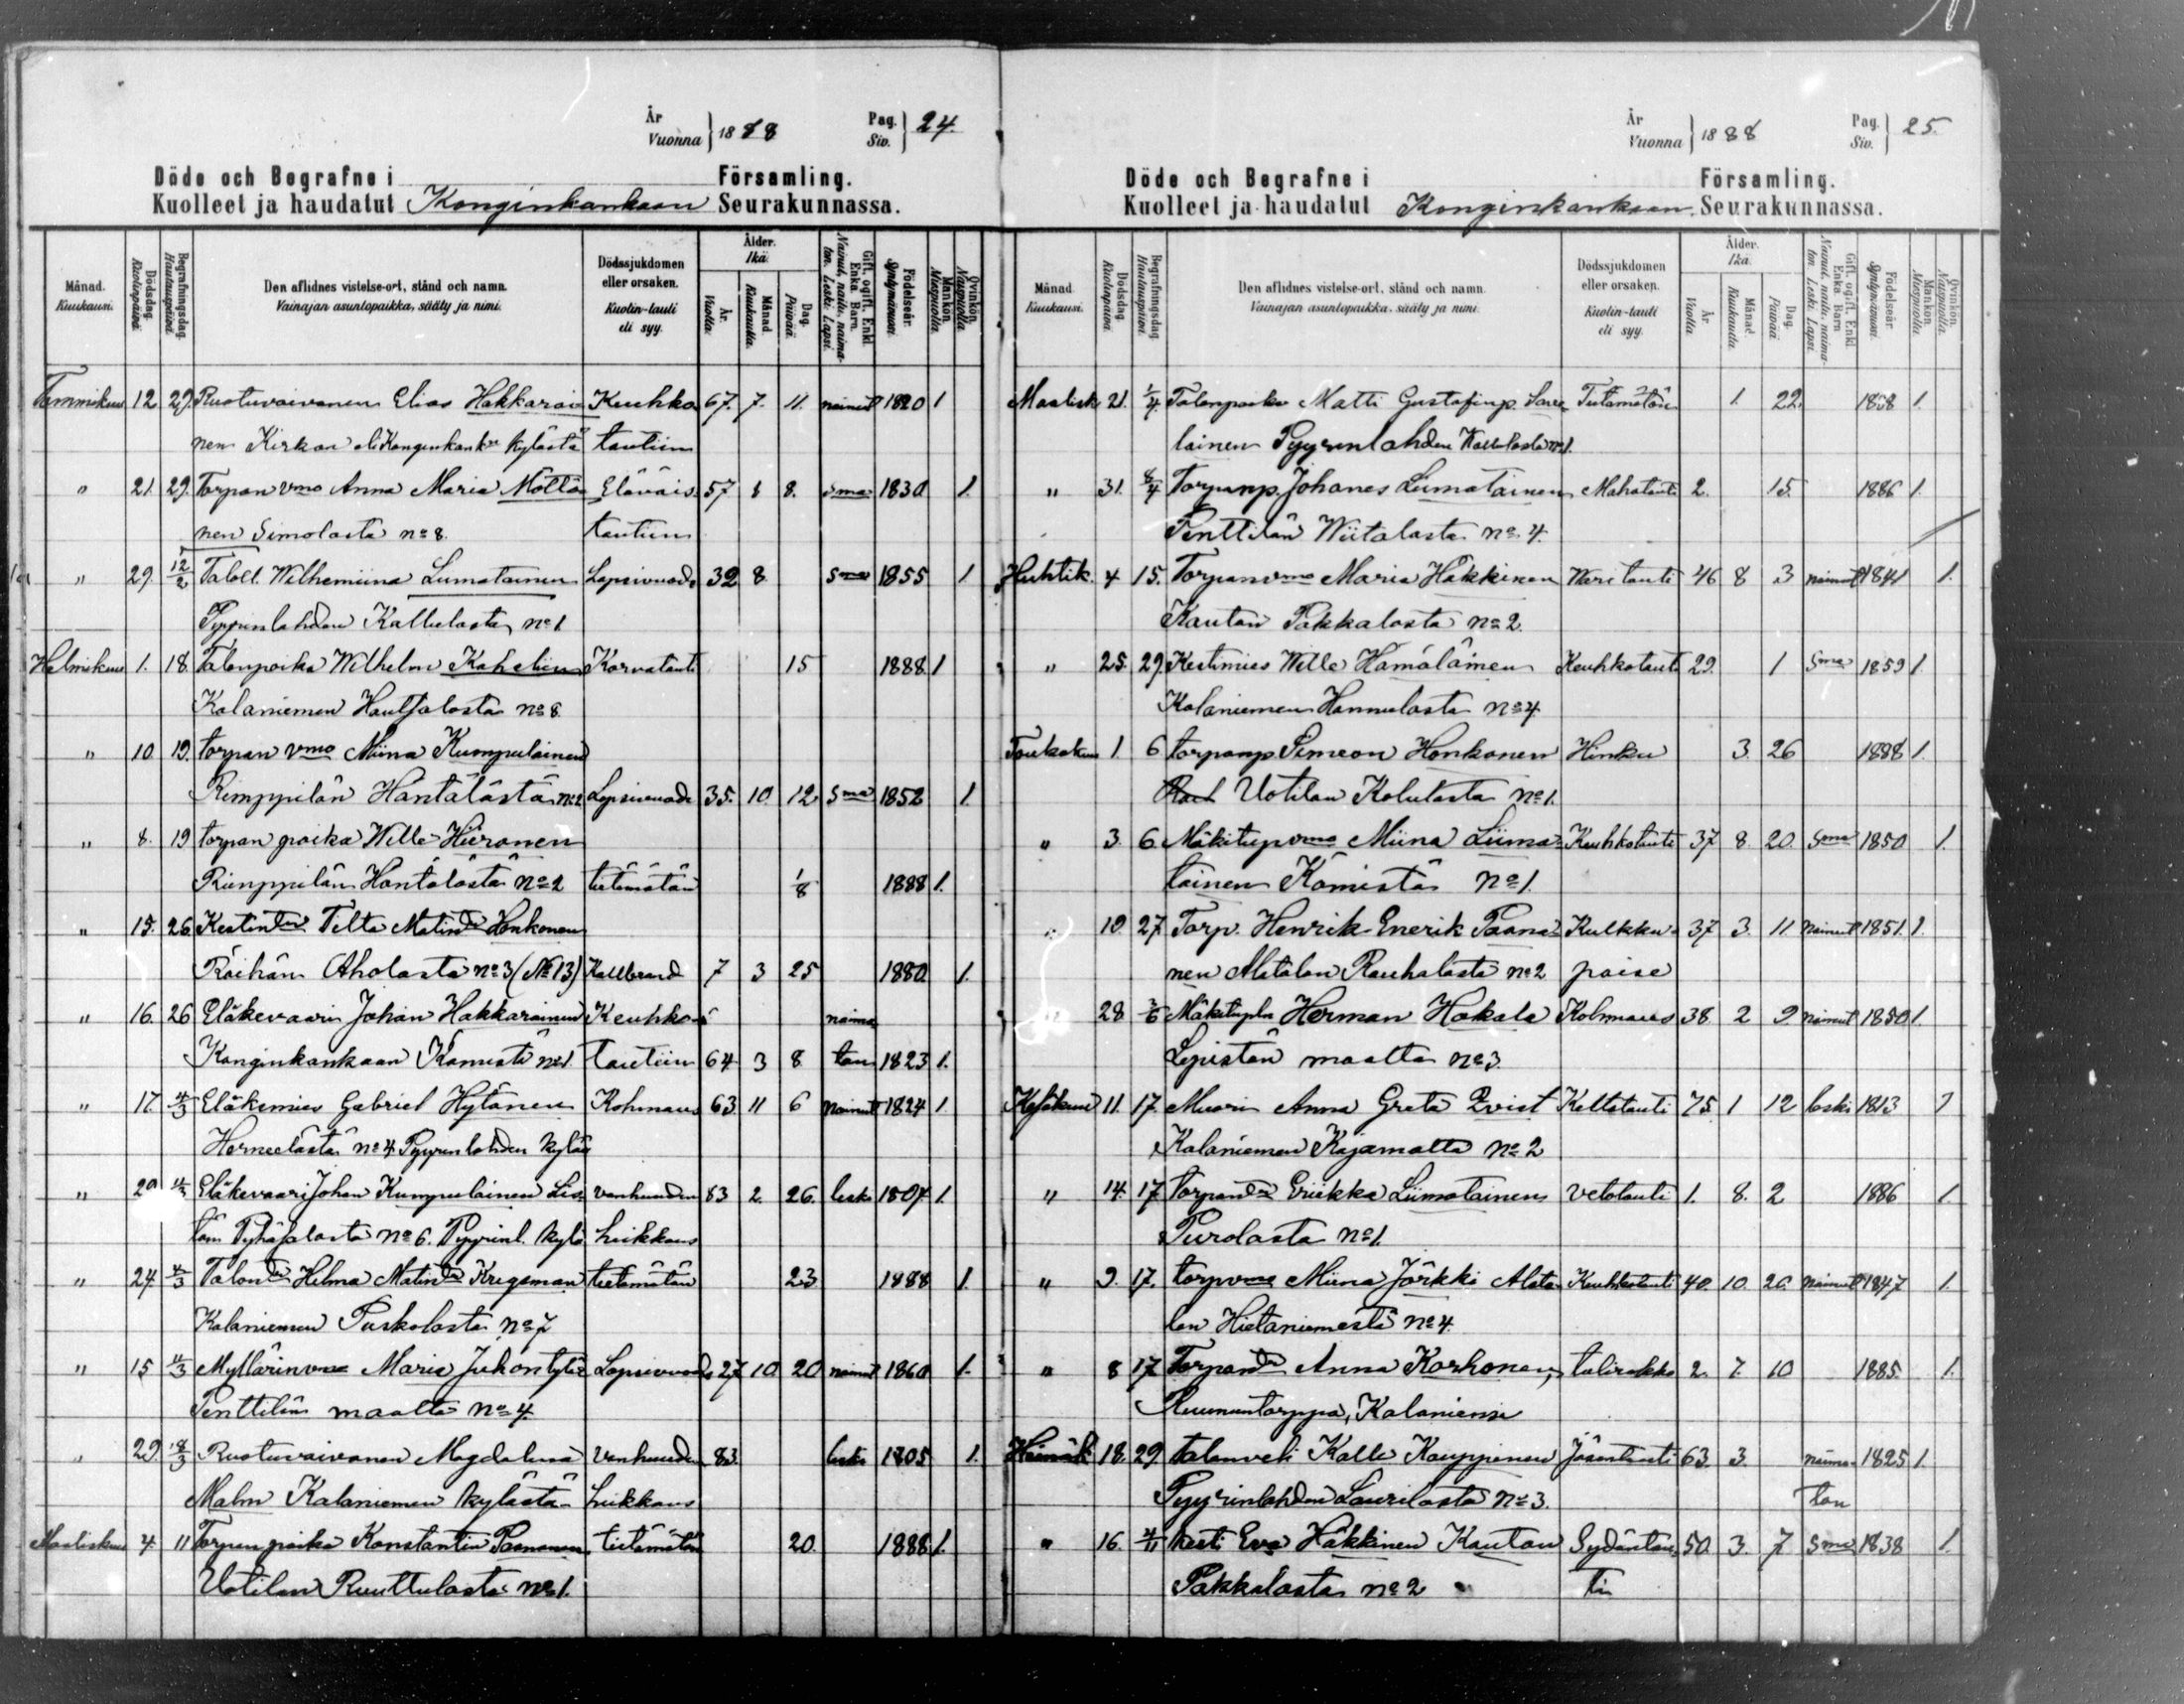 År Vuonna } 1888 Pag. Siv. } 24.
Döde och Begrafne i Församling.
Kuolleet ja haudatut Konginkankaan Seurakunnassa.
Månad. Kuukausi. Dödsdag. Kuolinpäivä. Begrafningsdag. Hautauspäivä. Den aflidnes vistelse-ort, stånd och namn. Vainajan asuntopaikka, sääty ja nimi. Dödssjukdomen eller orsaken. Kuolin-tauti eli syy. Ålder. Ikä. År. Vuotta. Månad. Kuukautta. Dag. Päivää. Gift, ogift, Enkl. Enka. Barn. Nainut, naitu, naimaton. Leski. Lapsi. Födelseår. Syntymävuosi. Mankön. Miespuolia. Qvinkön. Naispuolia.
Tammikuu 12 29. Ruotuvaivanen Elias Hakkarai= Keuhko 67. 7. 11. nainut 1820 1
nen Kirkon eli Konginkank. kylästä tautiin
" 21. 29. Torpan vmo Anna Maria Möttö= Eläväis 57 8. sma 1830 1.
nen Simolasta No 8. tautiin
" 29. 12/2 Taloll. Wilhemiina Lumatainen Lapsivuode 32 8. sma 1855 1
Pyyrinlahden Kallulasta No 1
Helmikuu 1. 18. Talonpoika Wilhelm Kahelin Korvatauti 15 1888 1
Kalaniemen Hautjalasta No 8.
" 10 19. torpan vmo Miina Kumpulainen
Rimppilän Häntälästä No 2 Lapsivuode 35. 10. 12 sma 1852 1.
" 8. 19 torpan poika Wille Hieronen
Rimppilän Hantälästä No 2 tietämätön 1/8 1888 1.
" 15. 26. Tilta Honkonen
Räihän Aholasta No 3 (No 13) Kallbrand 7 3 25 1880 1.
" 16. 26 Eläkevaari Johan Hakkarainen Keuhko= naima
Konginkankaan Kämistä No 1. tautiin 64 3 8 ton 1823 1.
" 17. 4/3 Eläkemies Gabriel Hytönen Kohmaus 63 11 6 nainut 1824 1
Herneelästä No 4 Pyyrinlahden kylää
" 20 Eläkevaari Johan Kumpulainen Lis= vanhuuden 83 2. 26. leski 1804 1.
tön Pyhäjalasta No 6. Pyyrinl. kylä heikkous
" 24 4/3 Talon Helma Krigsman tietämätön 23 1888 1.
Kalaniemen Puskolasta No 7
" 15 4/3 Myllärin vmo Maria Juhontytär Lapsivuode 27 10 20 nainut 1860 1.
Penttilän maalta No 4.
" 29. 18/3 Ruotuvaivanen Magdalena Vanhuuden 83. leski 1805 1.
Malm Kalaniemen kylästä heikkous
Maaliskuu 4. 11 Torpan poika Konstantin Paananen tietämätön 20. 1888 1.
Uotilan Ruuttulasta No 1.
År Vuonna } 1888 Pag. Siv. } 25.
Döde och Begrafne i Församling.
Kuolleet ja haudatut Konginkankaan Seurakunnassa.
Månad. Kuukausi. Dödsdag. Kuolinpäivä. Begrafningsdag. Hautauspäivä. Den aflidnes vistelse-ort, stånd och namn. Vainajan asuntopaikka, sääty ja nimi. Dödssjukdomen eller orsaken. Kuolin-tauti eli syy. Ålder. Ikä. År. Vuotta. Månad. Kuukautta. Dag. Päivää. Gift, ogift, Enkl. Enka. Barn Nainut, naitu, naimaton. Leski. Lapsi. Födelseår. Syntymävuosi. Mankön. Miespuolia. Qvinkön. Naispuolia.
Maalisk. 21. 1/4 Talonpoika Matti Gustafinp. Tietämätön 1. 22. 1888 1.
lainen Pyyrinlahden Kallulasta No 1.
" 31. 8/4 Torpanp. Johanes Liimatainen Mahatauti 2. 15. 1886 1.
Penttilän Wiitalasta No 4.
Huhtik. 4 15. Torpan vmo Maria Häkkinen Weritauti 46 8 3 nainut 1841 1.
Kautan Pakkalasta No 2.
" 25. 29. Kestimies Wille Hämäläinen Keuhkotauti 29. 1 sma 1859 1.
Kalaniemen Hannulasta No 4
Toukokuu 1. 6 torpanp Simeon Honkonen Hinku 3. 26 1888 1.
Uotilan Kolulasta No 1.
" 3. 6. Mäkitup vmo Miina Liima= Keuhkotauti 37 8. 20. sma 1850 1.
tainen Kämistä No 1.
" 10 27 Torp. Henrik Enerik Paana= Kulkku= 37 3. 11 nainut 1851. 1.
nen Alatalon Rauhalasta No 2 paise
28 Mäkitupla Herman Hakala Kohmaus 38. 2 9 nainut 1850 1.
Lepistön maalta No 3.
Kesäkuu 11. 17. Muori Anna Greta Qvist Keltatauti 75. 1 12 leski 1813 1
Kalaniemen Kajamalta No 2
" 14. 17. torpan Eriikka Liimatainen vetotauti 1. 8. 2 1886 1.
Purolasta No 1.
" 9. 17. torp vmo Miina Järkki Alata= Keuhkotauti 40. 10. 26. nainut 1847 1.
lon Hietaniemestä No 4.
" 8 17 Torpan Anna Korhonen, tulirokko 2. 7. 10 1885. 1.
Ruununtorppa, Kalaniemi
Heinäk. 18. 29. talonveli Kalle Kauppinen Jäsentauti 63. 3. naima= 1825 1.
Pyyrinlahden Laurilasta No 3. ton
" 16. kesti Eva Häkkinen Kautan Sydäntau= 50. 3. 7 sma 1838 1.
Pakkalasta No 2 ti